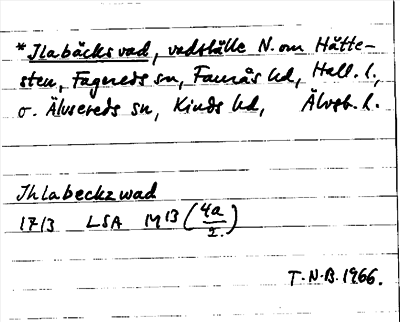 *Ilabäcks vad, vadställe N. om Hätte-
sten, Fagereds sn, Faurås hd, Hall. l.,
o. Älvsereds sn, Kinds hd, Älvsb. l.
Ihlabeckz wad
1713 LSA M 13 (4a/2.)
T.N.B. 1966.